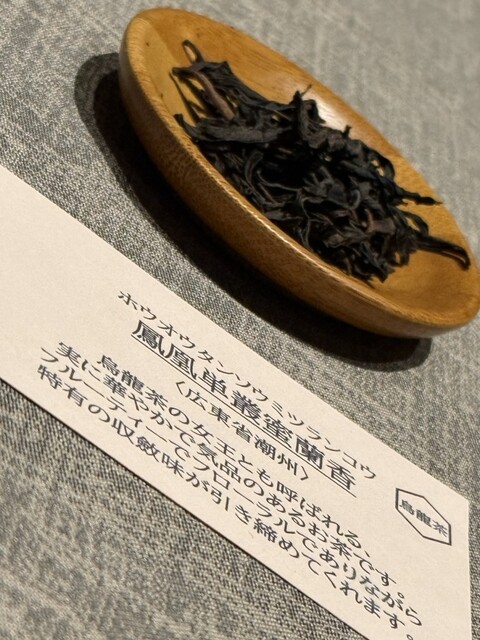 ホウオウタンソウミツランコウ
鳳凰単叢蜜蘭香
〈広東省潮州〉
烏龍茶の女王とも呼ばれる、
実に華やかで気品のあるお茶です。
フルーティーでフローラルでありながら
特有の収斂味が引き締めてくれます
烏龍茶